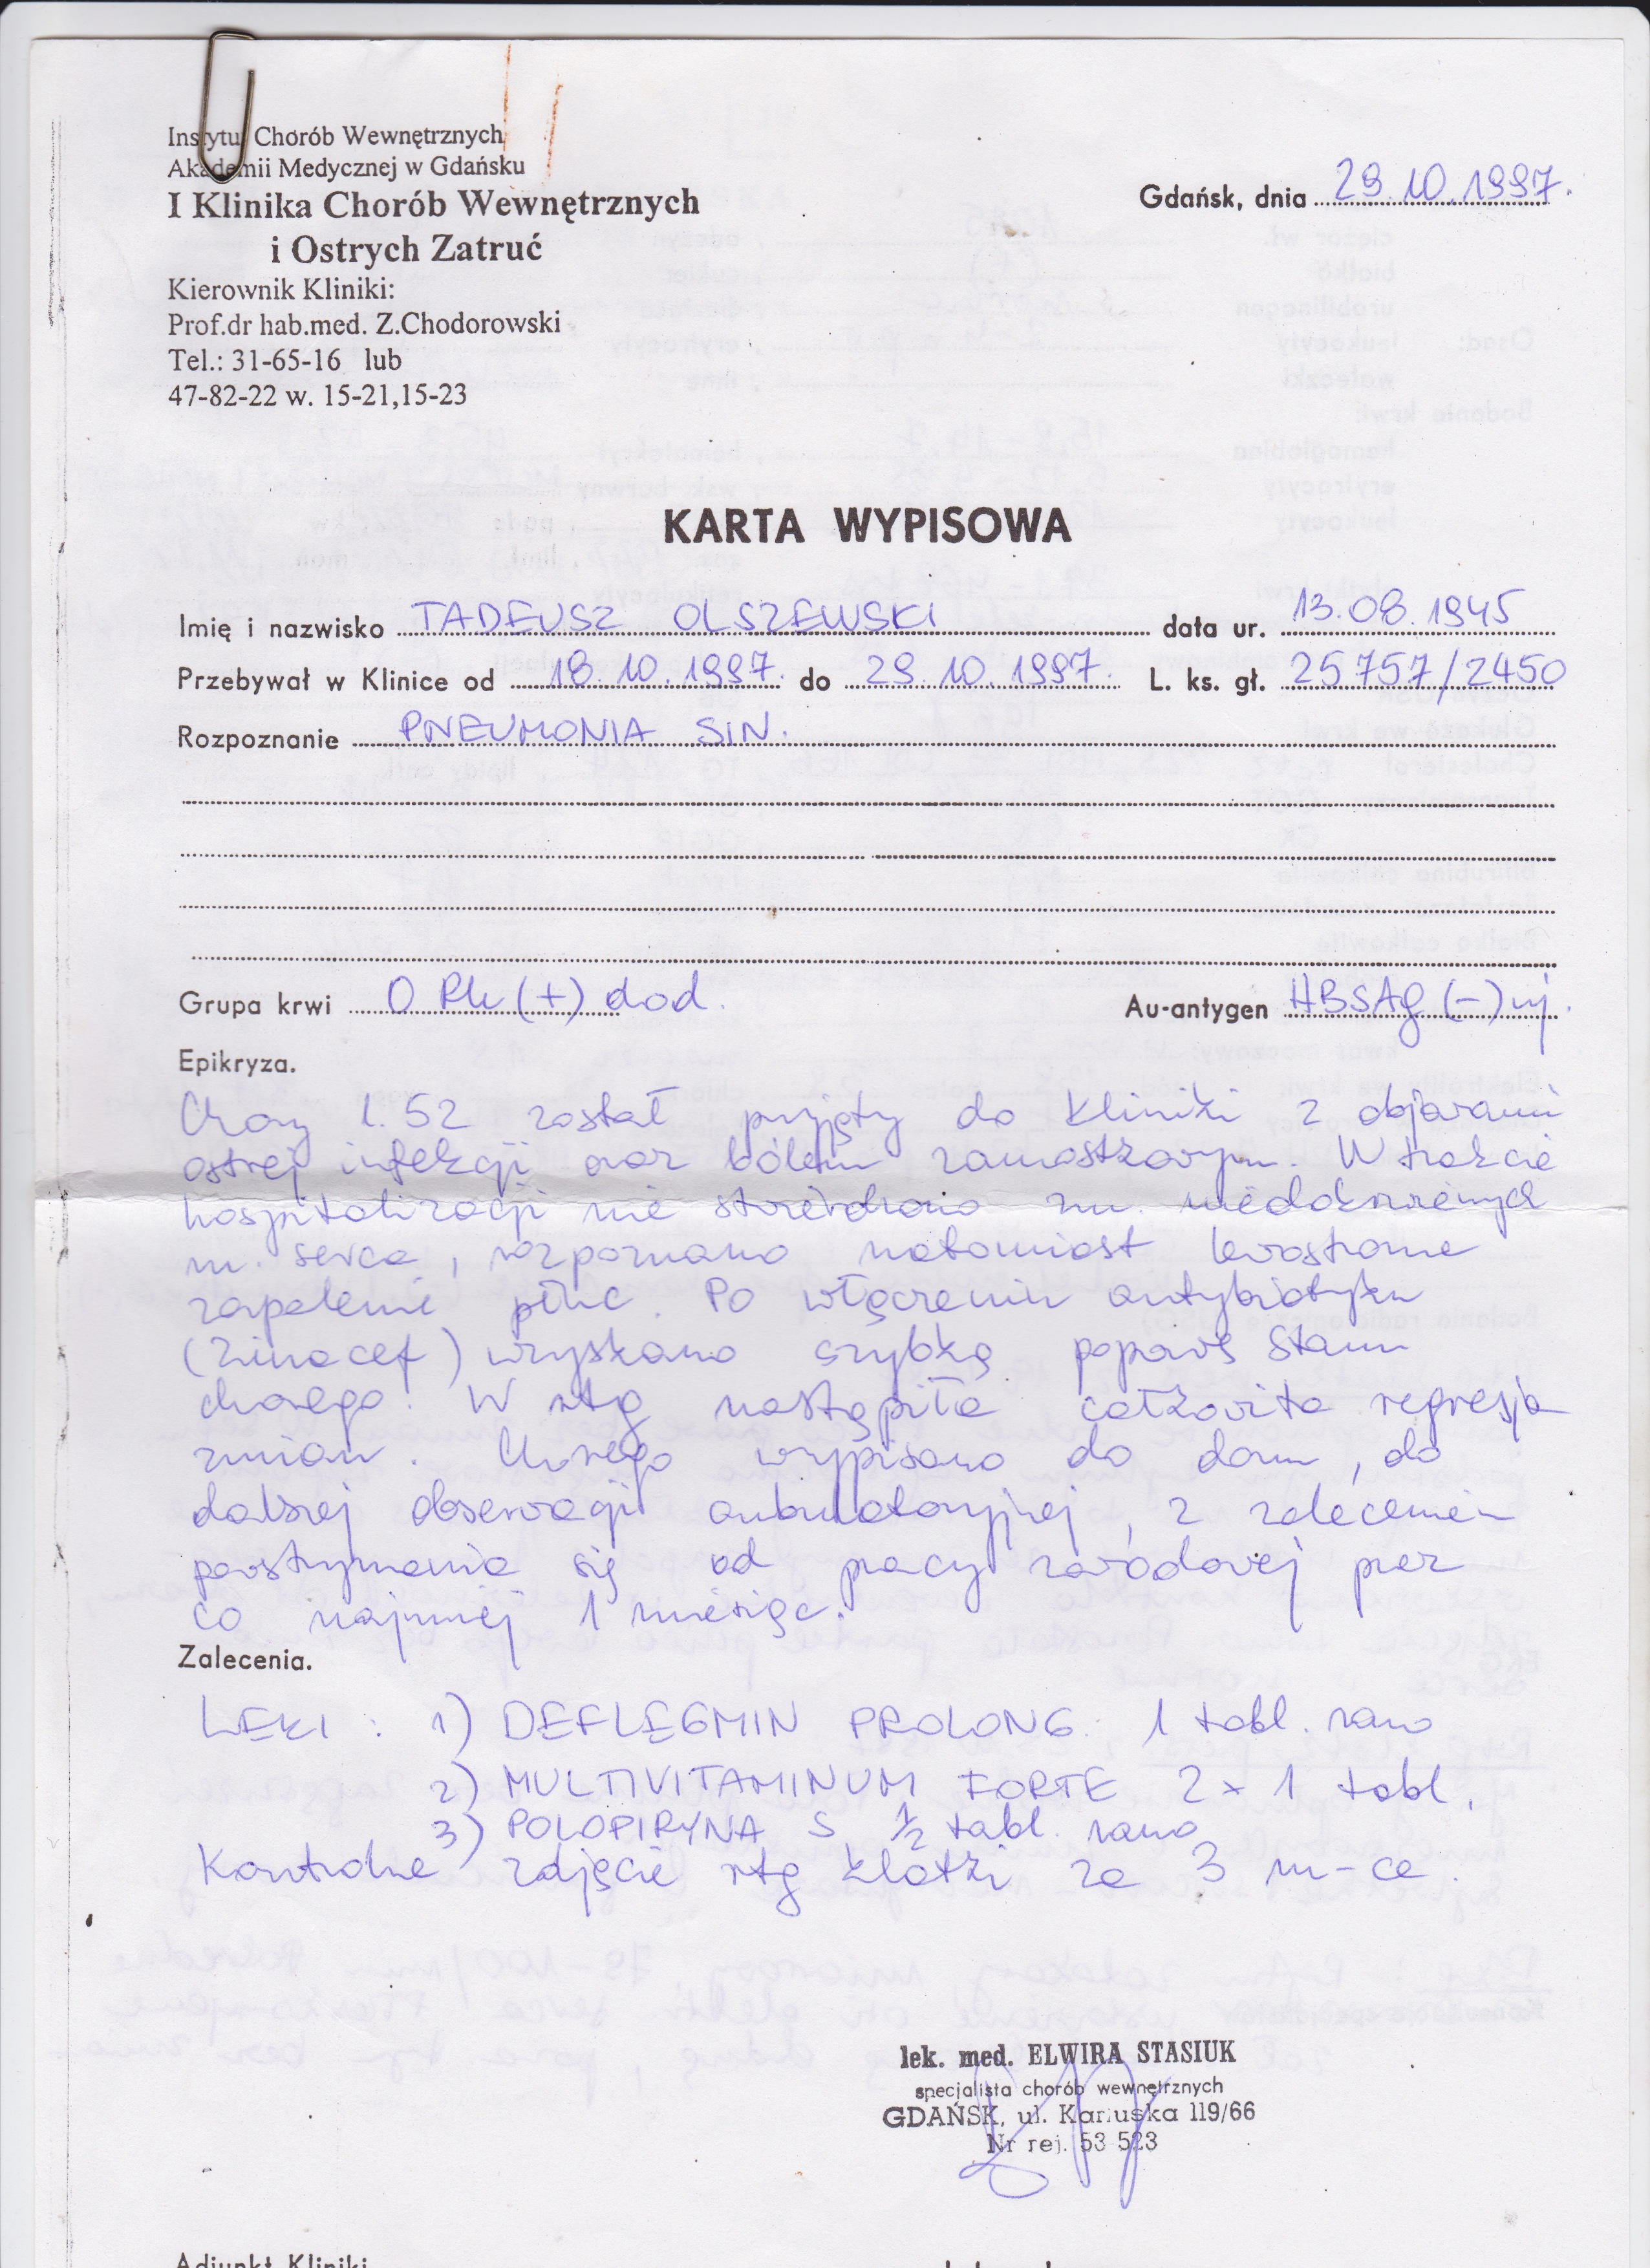 Instytut Chorób Wewnętrznych
Akademii Medycznej w Gdańsku
I Klinika Chorób Wewnętrznych
i Ostrych Zatruć
Kierownik Kliniki:
Prof.dr hab.med. Z.Chodorowski
Tel.: 31-65-16 lub
47-82-22 w. 15-21,15-23
Gdańsk, dnia 29.10.1997.
KARTA WYPISOWA
Imię i nazwisko TADEUSZ OLSZEWSKI data ur. 13.08.1945
Przebywał w Klinice od 18.10.1997. do 29.10.1997. L. ks. gł. 25757/2450
Rozpoznanie PNEUMONIA SIN.
Grupa krwi O Rh (+) dod. Au-antygen HBSAg (-) uj.
Epikryza.
Chory l. 52 został przyjęty do Kliniki z objawami
ostrej infekcji oraz bólem zamostkowym. W trakcie
hospitalizacji nie stwierdzono zm. niedokrwiennych
m. serca, rozpoznano natomiast lewostronne
zapalenie płuc. Po włączeniu antybiotyku
(Zinacef) uzyskano szybką poprawę stanu
chorego. W rtg nastąpiła całkowita regresja
zmian. Chorego wypisano do domu, do
dalszej obserwacji ambulatoryjnej, z zaleceniem
powstrzymania się od pracy zawodowej przez
co najmniej 1 miesiąc.
Zalecenia.
LEKI : 1) DEFLEGMIN PROLONG. 1 tabl. rano
2) MULTIVITAMINUM FORTE 2 x 1 tabl.
3) POLOPIRYNA S 1/2 tabl. rano
Kontrolne zdjęcie rtg klatki za 3 m-ce.
lek. med. ELWIRA STASIUK
specjalista chorób wewnętrznych
GDAŃSK, ul. Kartuska 119/66
Nr rej. 53 523
Adjunkt Kliniki